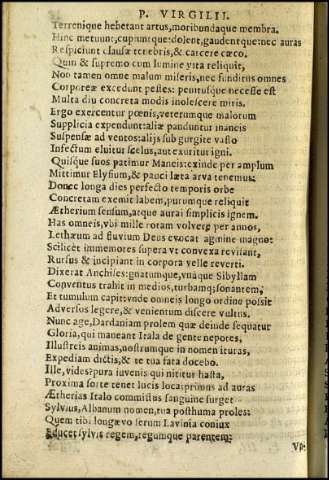 P. VIRGILII.
Terrenique hebetant artus, moribundaque membra.
Hinc metuunt, cupiuntque: dolent, gaudentque: nec auras
Respiciunt clausæ tenebris, & carcere cæco.
Quin & supremo cum lumine vita reliquit,
Non tamen omne malum miseris, nec funditus omnes
Corporeæ excedunt pestes: penitusque necesse est
Multa diu concreta modis inolescere miris.
Ergo exercentur pœnis, veterumque malorum
Supplicia expendunt: aliæ panduntur inaneis
Suspensæ ad ventos: aliis sub gurgite vasto
Infectum eluitur scelus, aut exuritur igni.
Quisque suos patimur Maneis: exinde per amplum
Mittimur Elysium, & pauci læta arva tenemus:
Donec longa dies perfecto temporis orbe
Concretam exemit labem, purumque reliquit
Ætherium sensum, atque aurai simplicis ignem.
Has omneis, vbi mille rotam volvere per annos,
Lethæum ad fluvium Deus evocat agmine magno:
Scilicet immemores supera vt convexa revisant,
Rursus & incipiant in corpora velle reverti.
Dixerat Anchises: gnatumque, vnaque Sibyllam
Conventus trahit in medios, turbamq; sonantem,
Et tumulum capit: vnde omneis longo ordine possit
Adversos legere, & venientum discere vultus.
Nunc age, Dardaniam prolem quæ deinde sequatur
Gloria, qui maneant Itala de gente nepotes,
Illustreis animas, nostrumque in nomen ituras,
Expediam dictis, & te tua fata docebo.
Ille, vides? pura iuvenis qui nititur hasta,
Proxima sorte tenet lucis loca: primus ad auras
Ætherias Italo commistus sanguine surget
Sylvius, Albanum nomen, tua posthuma proles:
Quem tibi longævo serum Lavinia coniux
Educet sylvis regem, regumque parentem: